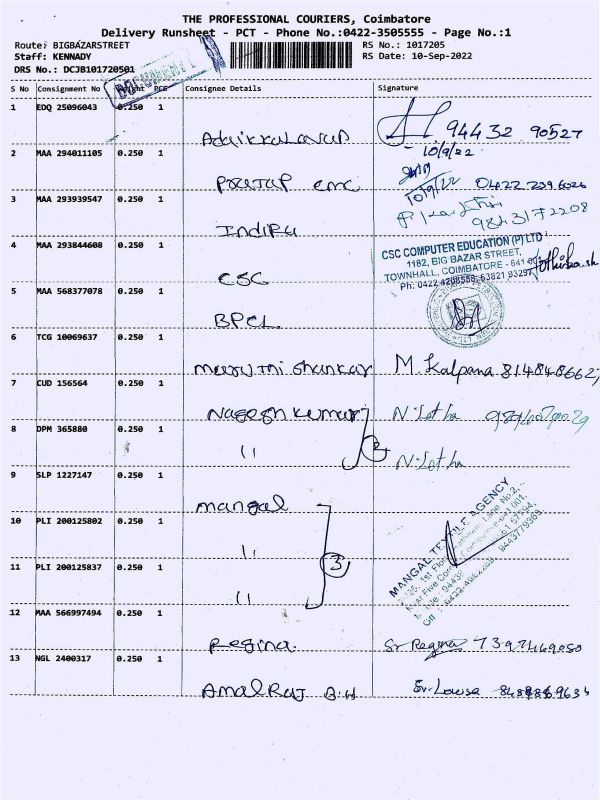 THE PROFESSIONAL COURIERS, Coimbatore
Delivery Runsheet - PCT - Phone No.:0422-3505555 - Page No.:1
Route: BIGBAZARSTREET
RS No.: 1017205
Staff: KENNADY
RS Date: 10-Sep-2022
DRS No.: DCJB101720501
DOCUMENT
S No Consignment No PCS Consignee Details Signature
1 EDQ 25096043 0.250 1
94432 90527
10/9/22
2 MAA 294011105 0.250 1
10/9/22 0422
3 MAA 293939547 0.250 1
9843172208
Indira
4 MAA 293844608 0.250 1
CSC COMPUTER EDUCATION (P) LTD
1182, BIG BAZAR STREET,
TOWNHALL, COIMBATORE - 641 001
Ph: 0422 4208556, 63821 83297
CSC
5 MAA 568377078 0.250 1
BPCL
6 TCG 10069637 0.250 1
M. Kalpana
7 CUD 156564 0.250 1
Nagesh Kumar
8 DPM 365880 0.250 1
" 2
9 SLP 1227147 0.250 1
Mangal
MANGAL TEXTILE AGENCY
10 PLI 200125802 0.250 1
"
11 PLI 200125837 0.250 1
3
"
12 MAA 566997494 0.250 1
Regina. Sr Regina
13 NGL 2400317 0.250 1
Amalraj B.H